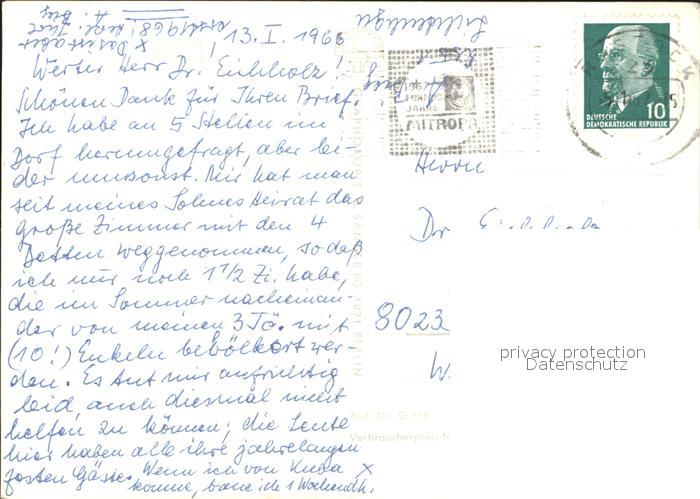 13. I. 1968
Werter Herr Dr. Eichholz!
Schönen Dank für Ihren Brief.
Ich habe an 5 Stellen im
Dorf herumgefragt, aber lei-
der umsonst. Mir hat man
seit meines Sohnes Heirat das
große Zimmer mit den 4
Betten weggenommen, so daß
ich nur noch 1 1/2 Zi. habe,
die im Sommer nacheinan-
der von meinen 3 Tö. mit
(10!) Enkeln bevölkert wer-
den. Es tut mir aufrichtig
leid, auch diesmal nicht
helfen zu können; die Leute
hier haben alle ihre jahrelangen
festen Gäste. Wenn ich von Kuba x
komme, baue ich 1 Wochendh.
x Das ist aber
erst 1968!
JAHRE
MITROPA
10
DEUTSCHE
DEMOKRATISCHE REPUBLIK
Herrn
Dr
8023
W.
1071 BERLIN
Best.-Nr. G
Verbraucherpreis M
privacy protection
Datenschutz